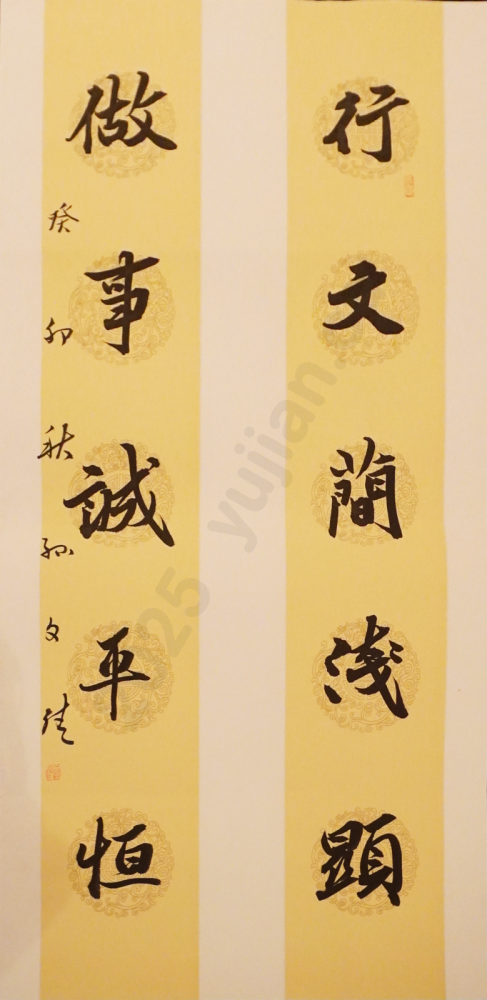 行文簡淺顕
做事誠平恒
癸卯秋孫文
2025 yujian.